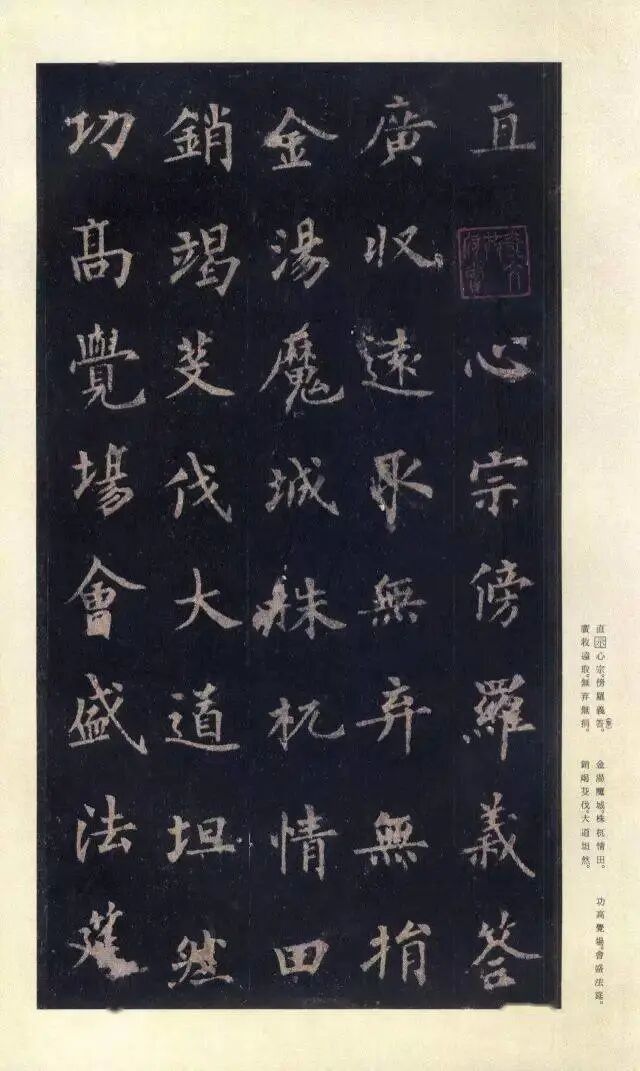 直心宗傍羅義答
廣收遠取無弃無捐
金湯魔城株杌情田
銷竭芟伐大道坦然
功高覺場會盛法筵
直示心宗。傍羅義答。金湯魔城。株杌情田。功高覺場。會盛法筵。
廣收遠取。無弃無捐。銷竭芟伐。大道坦然。